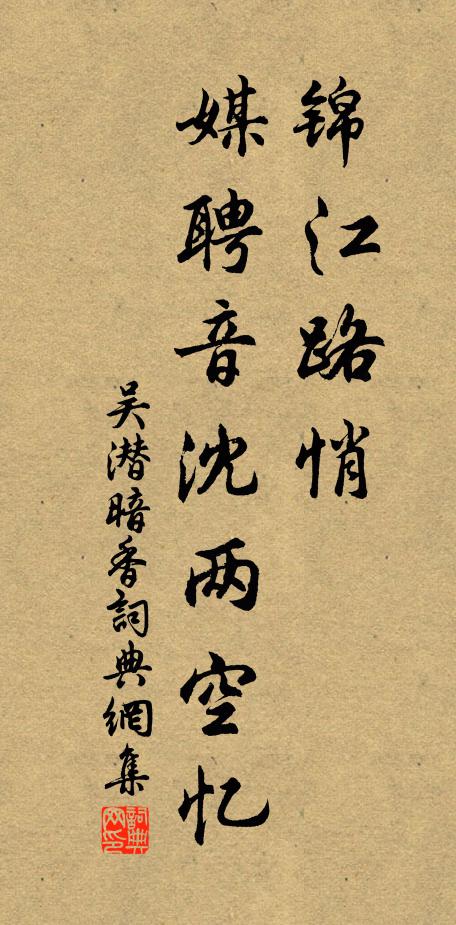 锦江路悄
媒聘音沈两空忆
吴潜暗香詞典網集
詞典网印